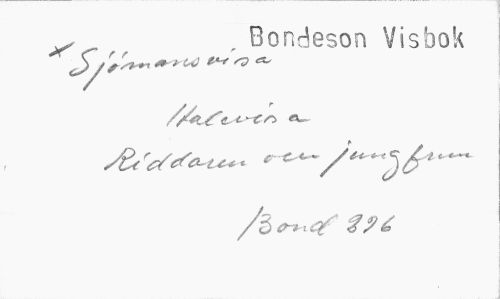 Bondeson Visbok
x Sjömansvisa
Halevisa
Riddaren och jungfrun
Bond 296